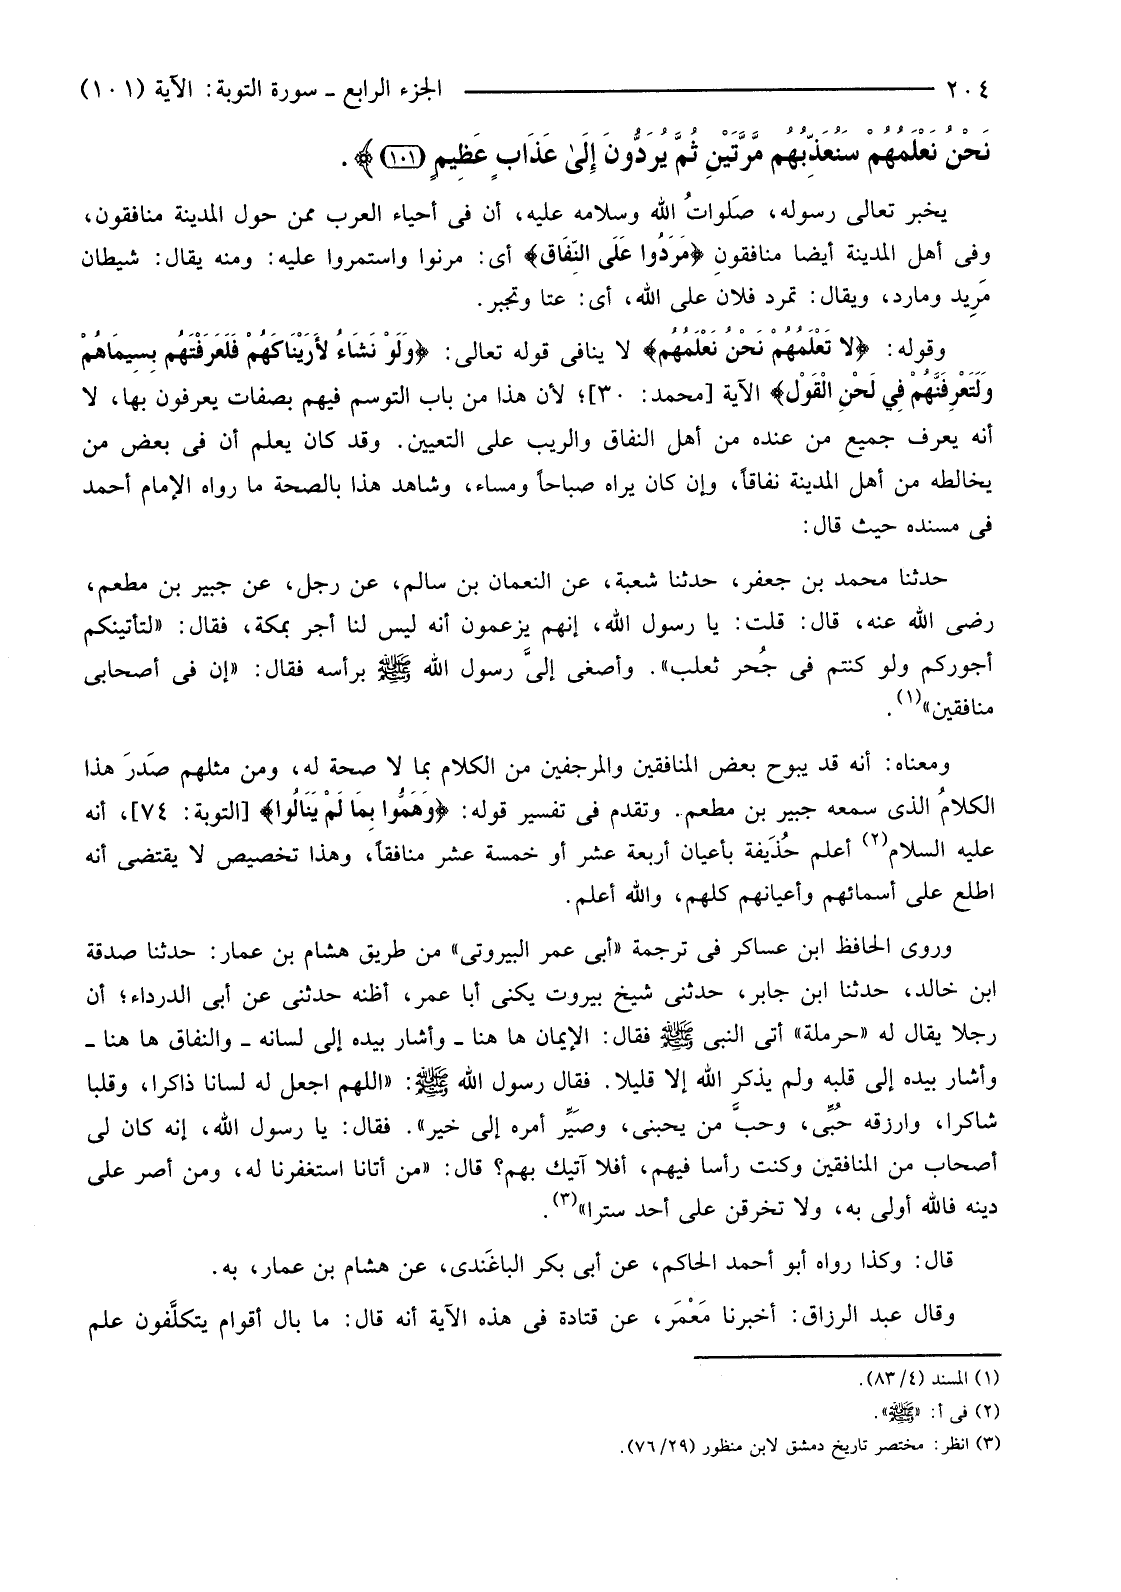 ٢٠٤ ــــــــــ الجزء الرابع - سورة التوبة: الآية (١٠١)
نَحْنُ نَعْلَمُهُمْ سَنُعَذِّبُهُم مَّرَّتَيْنِ ثُمَّ يُرَدُّونَ إِلَىٰ عَذَابٍ عَظِيمٍ (١٠١)﴾ .
يخبر تعالى رسوله، صَلَواتُ الله وسلامه عليه، أن فى أحياء العرب ممن حول المدينة منافقون،
وفى أهل المدينة أيضا منافقون ﴿مَرَدُوا عَلَى النِّفَاق﴾ أى: مرنوا واستمروا عليه: ومنه يقال: شيطان
مَرِيد ومارد، ويقال: تمرد فلان على الله، أى: عتا وتجبر.
وقوله: ﴿لا تَعْلَمُهُمْ نَحْنُ نَعْلَمُهُم﴾ لا ينافى قوله تعالى: ﴿وَلَوْ نَشَاءُ لأَرَيْنَاكَهُمْ فَلَعَرَفْتَهُم بِسِيمَاهُمْ
وَلَتَعْرِفَنَّهُمْ فِي لَحْنِ الْقَوْل﴾ الآية [محمد: ٣٠]؛ لأن هذا من باب التوسم فيهم بصفات يعرفون بها، لا
أنه يعرف جميع من عنده من أهل النفاق والريب على التعيين. وقد كان يعلم أن فى بعض من
يخالطه من أهل المدينة نفاقاً، وإن كان يراه صباحاً ومساء، وشاهد هذا بالصحة ما رواه الإمام أحمد
فى مسنده حيث قال:
حدثنا محمد بن جعفر، حدثنا شعبة، عن النعمان بن سالم، عن رجل، عن جبير بن مطعم،
رضى الله عنه، قال: قلت: يا رسول الله، إنهم يزعمون أنه ليس لنا أجر بمكة، فقال: «لتأتينكم
أجوركم ولو كنتم فى جُحر ثعلب». وأصغى إلىَّ رسول الله ﷺ برأسه فقال: «إن فى أصحابى
منافقين»(١).
ومعناه: أنه قد يبوح بعض المنافقين والمرجفين من الكلام بما لا صحة له، ومن مثلهم صَدَرَ هذا
الكلامُ الذى سمعه جبير بن مطعم. وتقدم فى تفسير قوله: ﴿وَهَمُّوا بِمَا لَمْ يَنَالُوا﴾ [التوبة: ٧٤]، أنه
عليه السلام(٢) أعلم حُذَيفة بأعيان أربعة عشر أو خمسة عشر منافقاً، وهذا تخصيص لا يقتضى أنه
اطلع على أسمائهم وأعيانهم كلهم، والله أعلم.
وروى الحافظ ابن عساكر فى ترجمة «أبى عمر البيروتى» من طريق هشام بن عمار: حدثنا صدقة
ابن خالد، حدثنا ابن جابر، حدثنى شيخ بيروت يكنى أبا عمر، أظنه حدثنى عن أبى الدرداء؛ أن
رجلا يقال له «حرملة» أتى النبى ﷺ فقال: الإيمان ها هنا ـ وأشار بيده إلى لسانه ـ والنفاق ها هنا ـ
وأشار بيده إلى قلبه ولم يذكر الله إلا قليلا. فقال رسول الله ﷺ: «اللهم اجعل له لسانا ذاكرا، وقلبا
شاكرا، وارزقه حُبِّى، وحبَّ من يحبنى، وصَيِّر أمره إلى خير». فقال: يا رسول الله، إنه كان لى
أصحاب من المنافقين وكنت رأسا فيهم، أفلا آتيك بهم؟ قال: «من أتانا استغفرنا له، ومن أصر على
دينه فالله أولى به، ولا تخرقن على أحد سترا»(٣).
قال: وكذا رواه أبو أحمد الحاكم، عن أبى بكر الباغَندى، عن هشام بن عمار، به.
وقال عبد الرزاق: أخبرنا مَعْمَر، عن قتادة فى هذه الآية أنه قال: ما بال أقوام يتكلَّفون علم
(١) المسند (٤/ ٨٣).
(٢) فى أ: «ﷺ».
(٣) انظر: مختصر تاريخ دمشق لابن منظور (٢٩/ ٧٦).